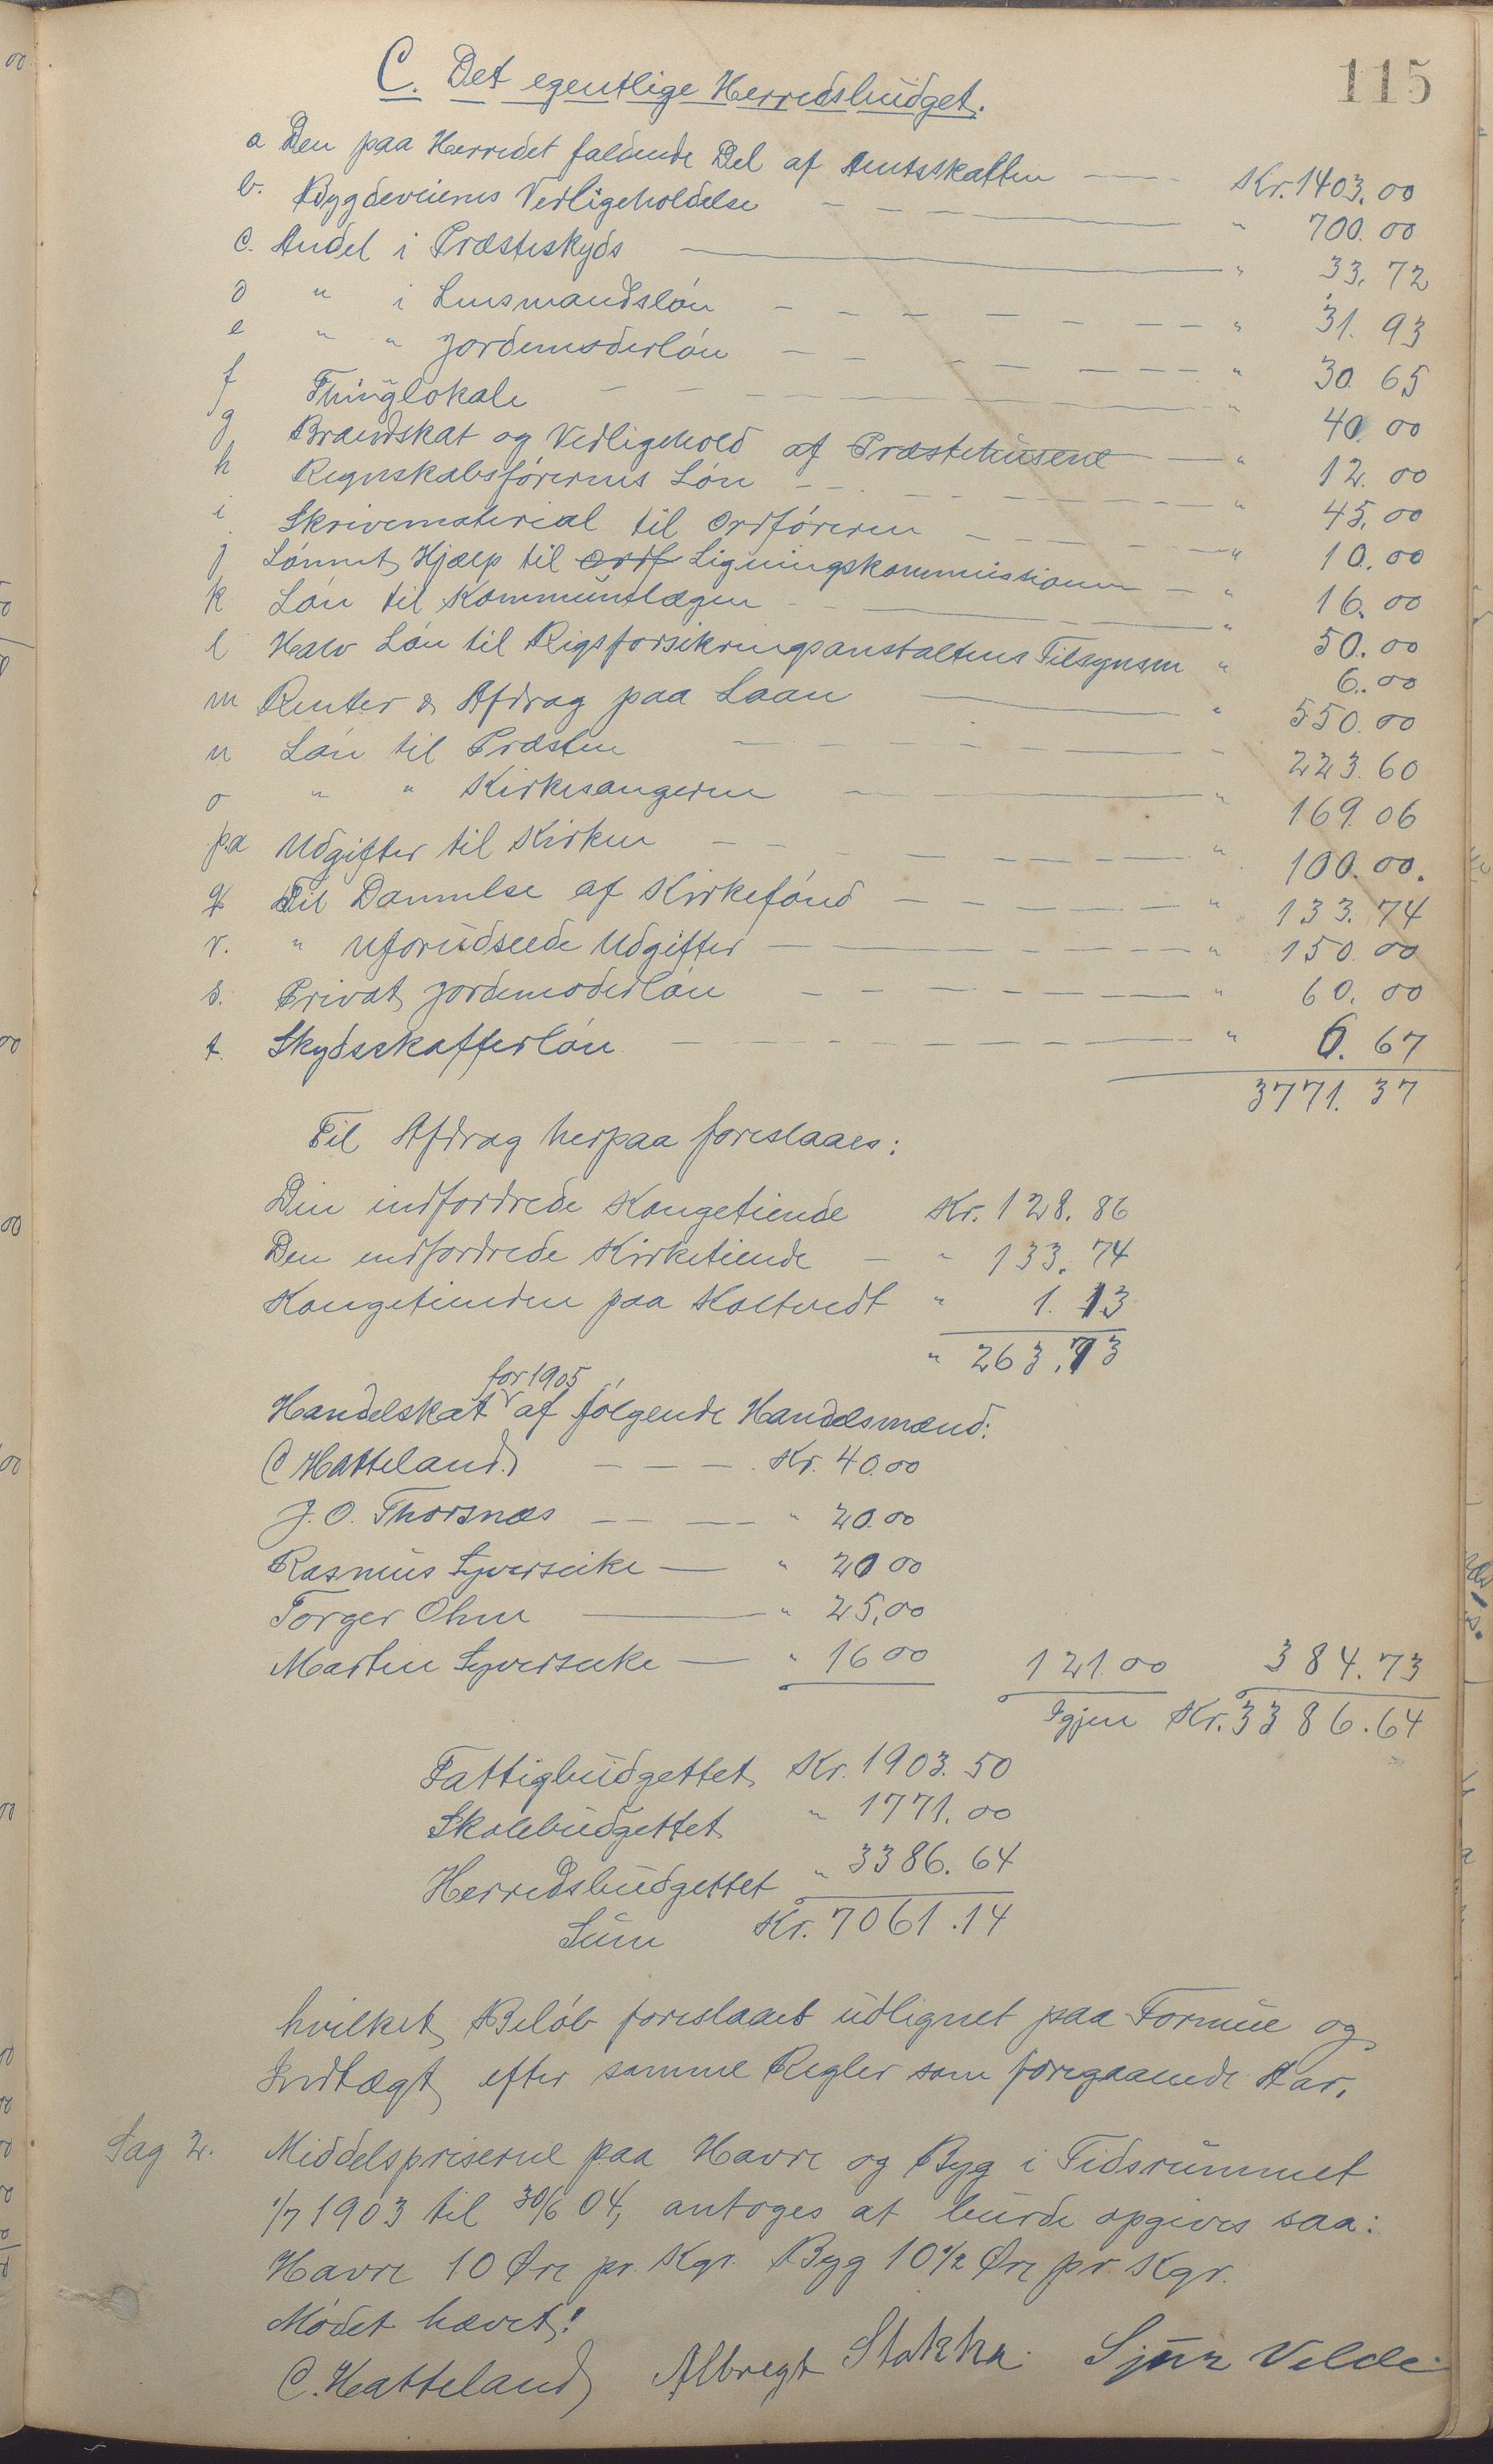 115
C. Det egentlige Herredsbudget.
a Den paa Herredet faldende Del af Amtsskatten Kr. 1403.00
b. Bygdeveienes Vedligeholdelse " 700.00
c. Andel i Præsteskyds " 33.72
d " i Lensmandsløn " 31.93
e " " Jordemoderløn " 30.65
f Thinglokale " 40.00
g Brandskat og Vedligehold af Præstehusene " 12.00
h Regnskabsførerens Løn " 45.00
i Skrivematerial til Ordføreren " 10.00
j Lønnet Hjælp til Ordf Ligningskommissionen " 16.00
k Løn til Kommunelægen " 50.00
l Halv Løn til Rigsforsikringsanstaltens Tilsynsm " 6.00
m Renter & Afdrag paa Laan " 550.00
n Løn til Præsten " 223.60
o " " Kirkesangeren " 169.06
pa Udgifter til Kirken " 100.00.
q Til Dannelse af Kirkefond " 133.74
r. " Uforudseede Udgifter " 150.00
s. Privat Jordemoderløn " 60.00
t. Skydsskafferløn " 6.67
3771.37
Til Afdrag herpaa foreslaaes:
Den indfordrede Kongetiende Kr. 128.86
Den indfordrede Kirketiende " 133.74
Kongetienden paa Holtvedt " 1.13
" 263.73
for 1905
Handelskat af følgende Handelsmænd:
C Hatteland. Kr. 40.00
J. O. Thorsnæs " 20.00
Rasmus Syverseike " 20 00
Torger Ohm " 25.00
Martin Syverseike " 16 00 121.00 384.73
Igjen Kr. 3386.64
Fattigbudgettet Kr. 1903.50
Skolebudgettet " 1771.00
Herredsbudgettet " 3386.64
Sum Kr. 7061.14
hvilket Beløb foreslaaes udlignet paa Formue og
Indtægt efter samme Regler som foregaaende Aar.
Sag 2. Middelspriserne paa Havre og Byg i Tidsrummet
1/7 1903 til 30/6 04, antoges at burde opgives saa:
Havre 10 Øre pr. Kgr. Byg 10 1/2 Øre pr. Kgr.
Mødet hævet!
C. Hatteland Albregt Stakka. Sjur Velde.